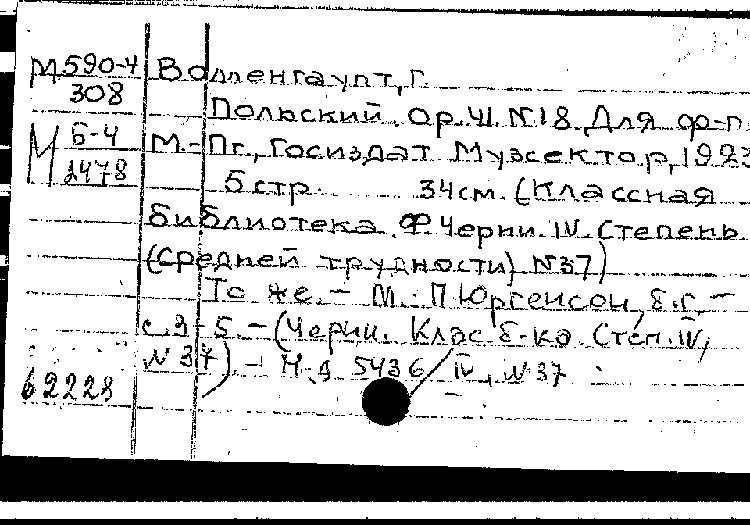 М 590-4 Волленгаупт, Г.
308
Польский. Ор. 41. N18. Для ф-п.
М 6-4 М.-Пг., Госиздат Музсектор, 1923
2478
5 стр. 34см. (Классная
библиотека. Ф. Черни. IV. Степень
(средней трудности) N37)
То же. – М. П. Юргенсон, б.г. –
с. 3-5. – (Черни. Клас. б-ка. Степ. IV,
N 37). – Н.д. 5436/IV, N 37
62228